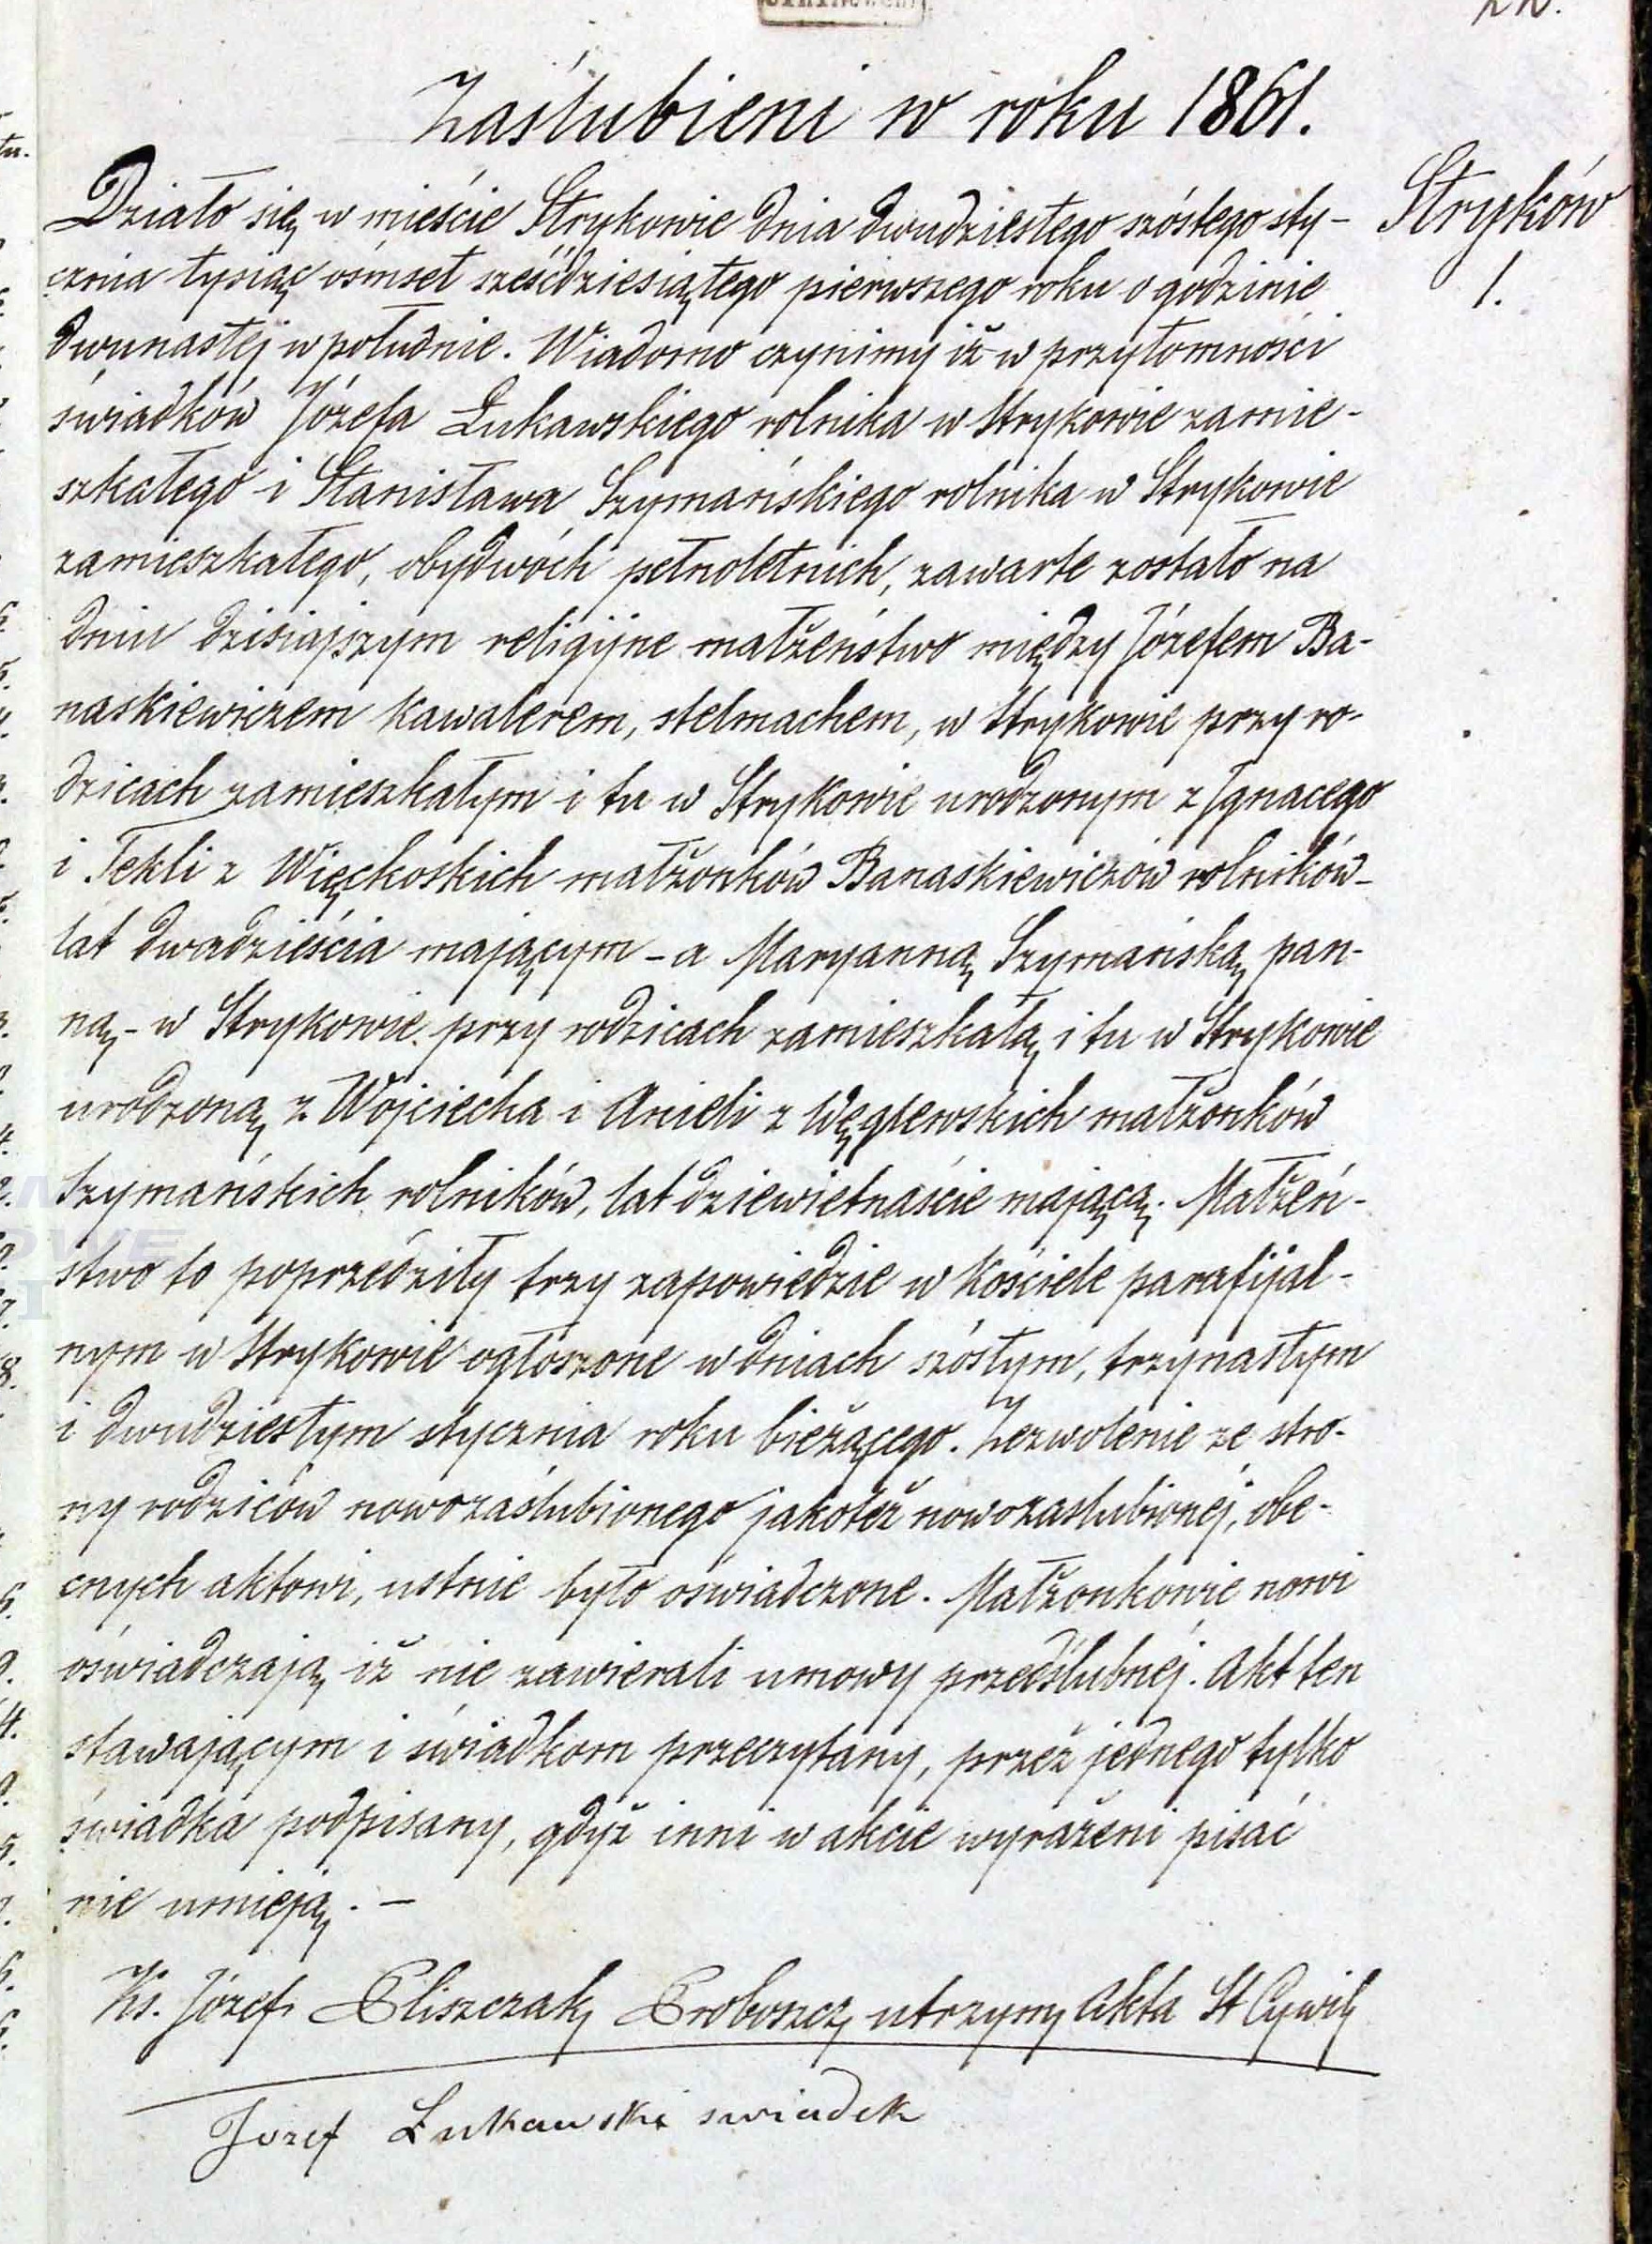 Zaślubieni w roku 1861.
Stryków
1.
Działo się w mieście Strykowie dnia dwudziestego szóstego sty-
cznia tysiąc ośmset sześćdziesiątego pierwszego roku o godzinie
dwunastéj w południe. Wiadomo czynimy iż w przytomności
świadków Józefa Łukawskiego rolnika w Strykowie zamie-
szkałego i Stanisława Szymańskiego rolnika w Strykowie
zamieszkałego, obydwóch pełnoletnich, zawarte zostało na
dniu dzisiajszym religijne małżeństwo między Józefem Ba-
naskiewiczem kawalerem, stelmachem, w Strykowie przy ro-
dzicach zamieszkałym i tu w Strykowie urodzonym z Ignacego
i Tekli z Więckoskich małżonków Banaskiewiczów rolników -
lat dwadzieścia mającym - a Maryanną Szymańską pan-
ną - w Strykowie przy rodzicach zamieszkałą i tu w Strykowie
urodzoną z Wojciecha i Anieli z Węglewskich małżonków
Szymańskich rolników, lat dziewietnaście mającą. Małżeń-
stwo to poprzedziły trzy zapowiedzie w Kościele parafijal-
nym w Strykowie ogłoszone w dniach szóstym, trzynastym
i dwudziestym stycznia roku bieżącego. Zezwolenie ze stro-
ny rodziców nowozaślubionego jakoteż nowozaslubionéj, obe-
cnych aktowi, ustnie było oświadczone. Małżonkowie nowi
oświadczają iż nie zawierali umowy przedślubnéj. Akt ten
stawającym i świadkom przeczytany, przez jednego tylko
świadka podpisany, gdyż inni w akcie wyrażeni pisać
nie umieją. -
Ks. Józef Pliszczak Proboszcz utrzym Akta St Cywil
Jozef Łukawski swiadek